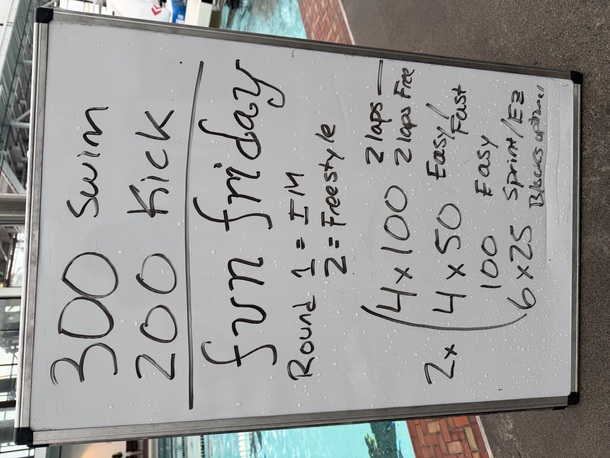 300 Swim
200 Kick
fun friday
Round 1 = IM
2 = Freestyle
2x ( 4 x 100 2 laps —
2 laps Free
4 x 50 Easy/
Fast
100 Easy
6 x 25 Sprint/Ez
Blocks optional